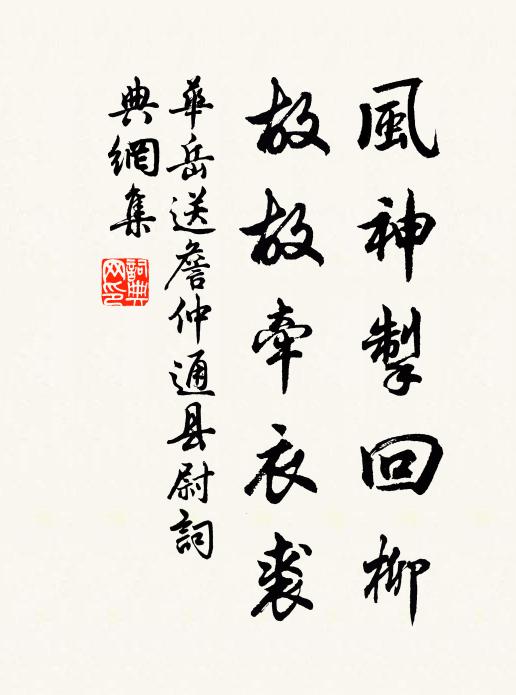 風神掣回柳
故故牽衣裘
華岳送詹仲通县尉詞
典網集
詞典
网印